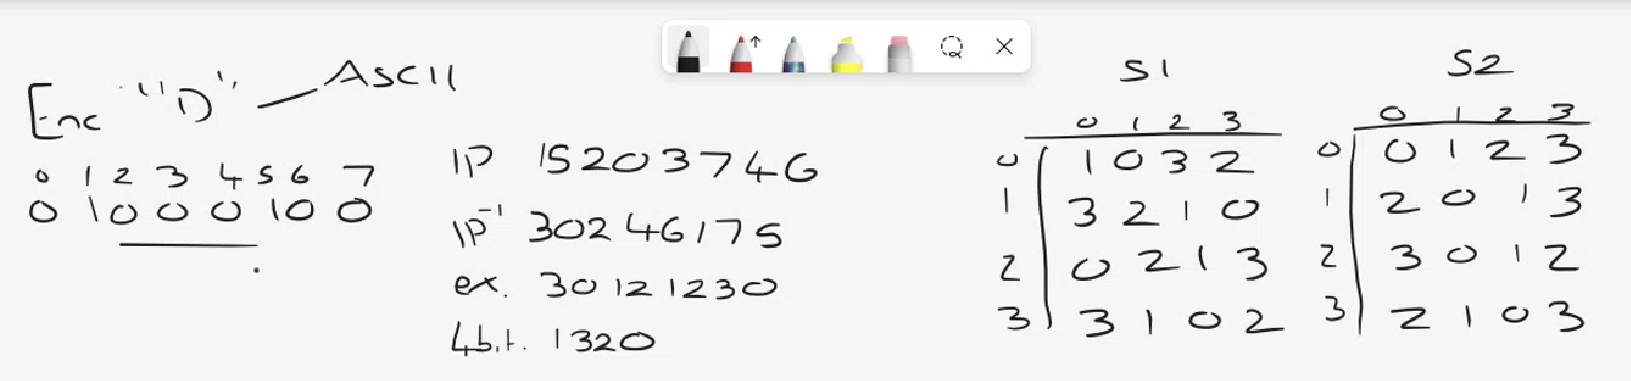 Enc "D" ASCII
0 1 2 3 4 5 6 7
0 1 0 0 0 1 0 0
IP 15203746
IP⁻¹ 30246175
ex. 30121230
4bit. 1320
S1
0 1 2 3
0 1 0 3 2
1 3 2 1 0
2 0 2 1 3
3 3 1 0 2
S2
0 1 2 3
0 0 1 2 3
1 2 0 1 3
2 3 0 1 2
3 2 1 0 3